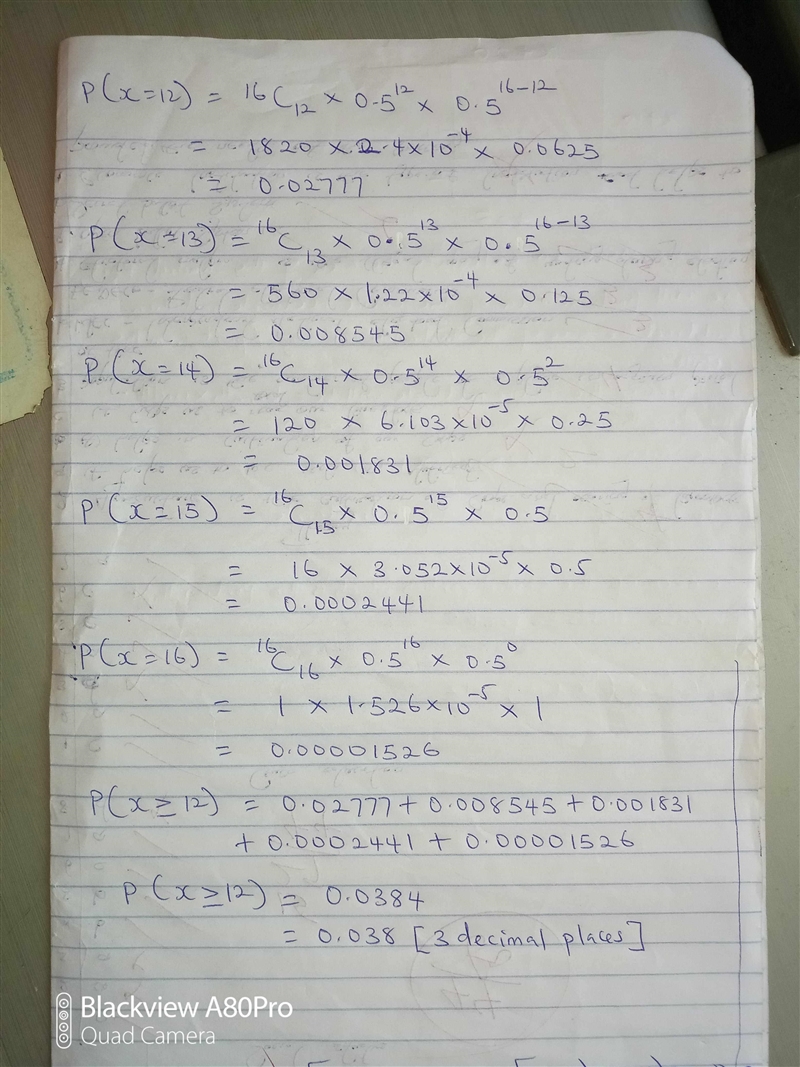 P(x=12) = ¹⁶C₁₂ × 0.5¹² × 0.5¹⁶⁻¹²
= 1820 × 2.4×10⁻⁴ × 0.0625
= 0.02777
P(x=13) = ¹⁶C₁₃ × 0.5¹³ × 0.5¹⁶⁻¹³
= 560 × 1.22×10⁻⁴ × 0.125
= 0.008545
P(x=14) = ¹⁶C₁₄ × 0.5¹⁴ × 0.5²
= 120 × 6.103×10⁻⁵ × 0.25
= 0.001831
P(x=15) = ¹⁶C₁₅ × 0.5¹⁵ × 0.5
= 16 × 3.052×10⁻⁵ × 0.5
= 0.0002441
P(x=16) = ¹⁶C₁₆ × 0.5¹⁶ × 0.5⁰
= 1 × 1.526×10⁻⁵ × 1
= 0.00001526
P(x≥12) = 0.02777 + 0.008545 + 0.001831
+ 0.0002441 + 0.00001526
P(x≥12) = 0.0384
= 0.038 [3 decimal places]
Blackview A80Pro
Quad Camera